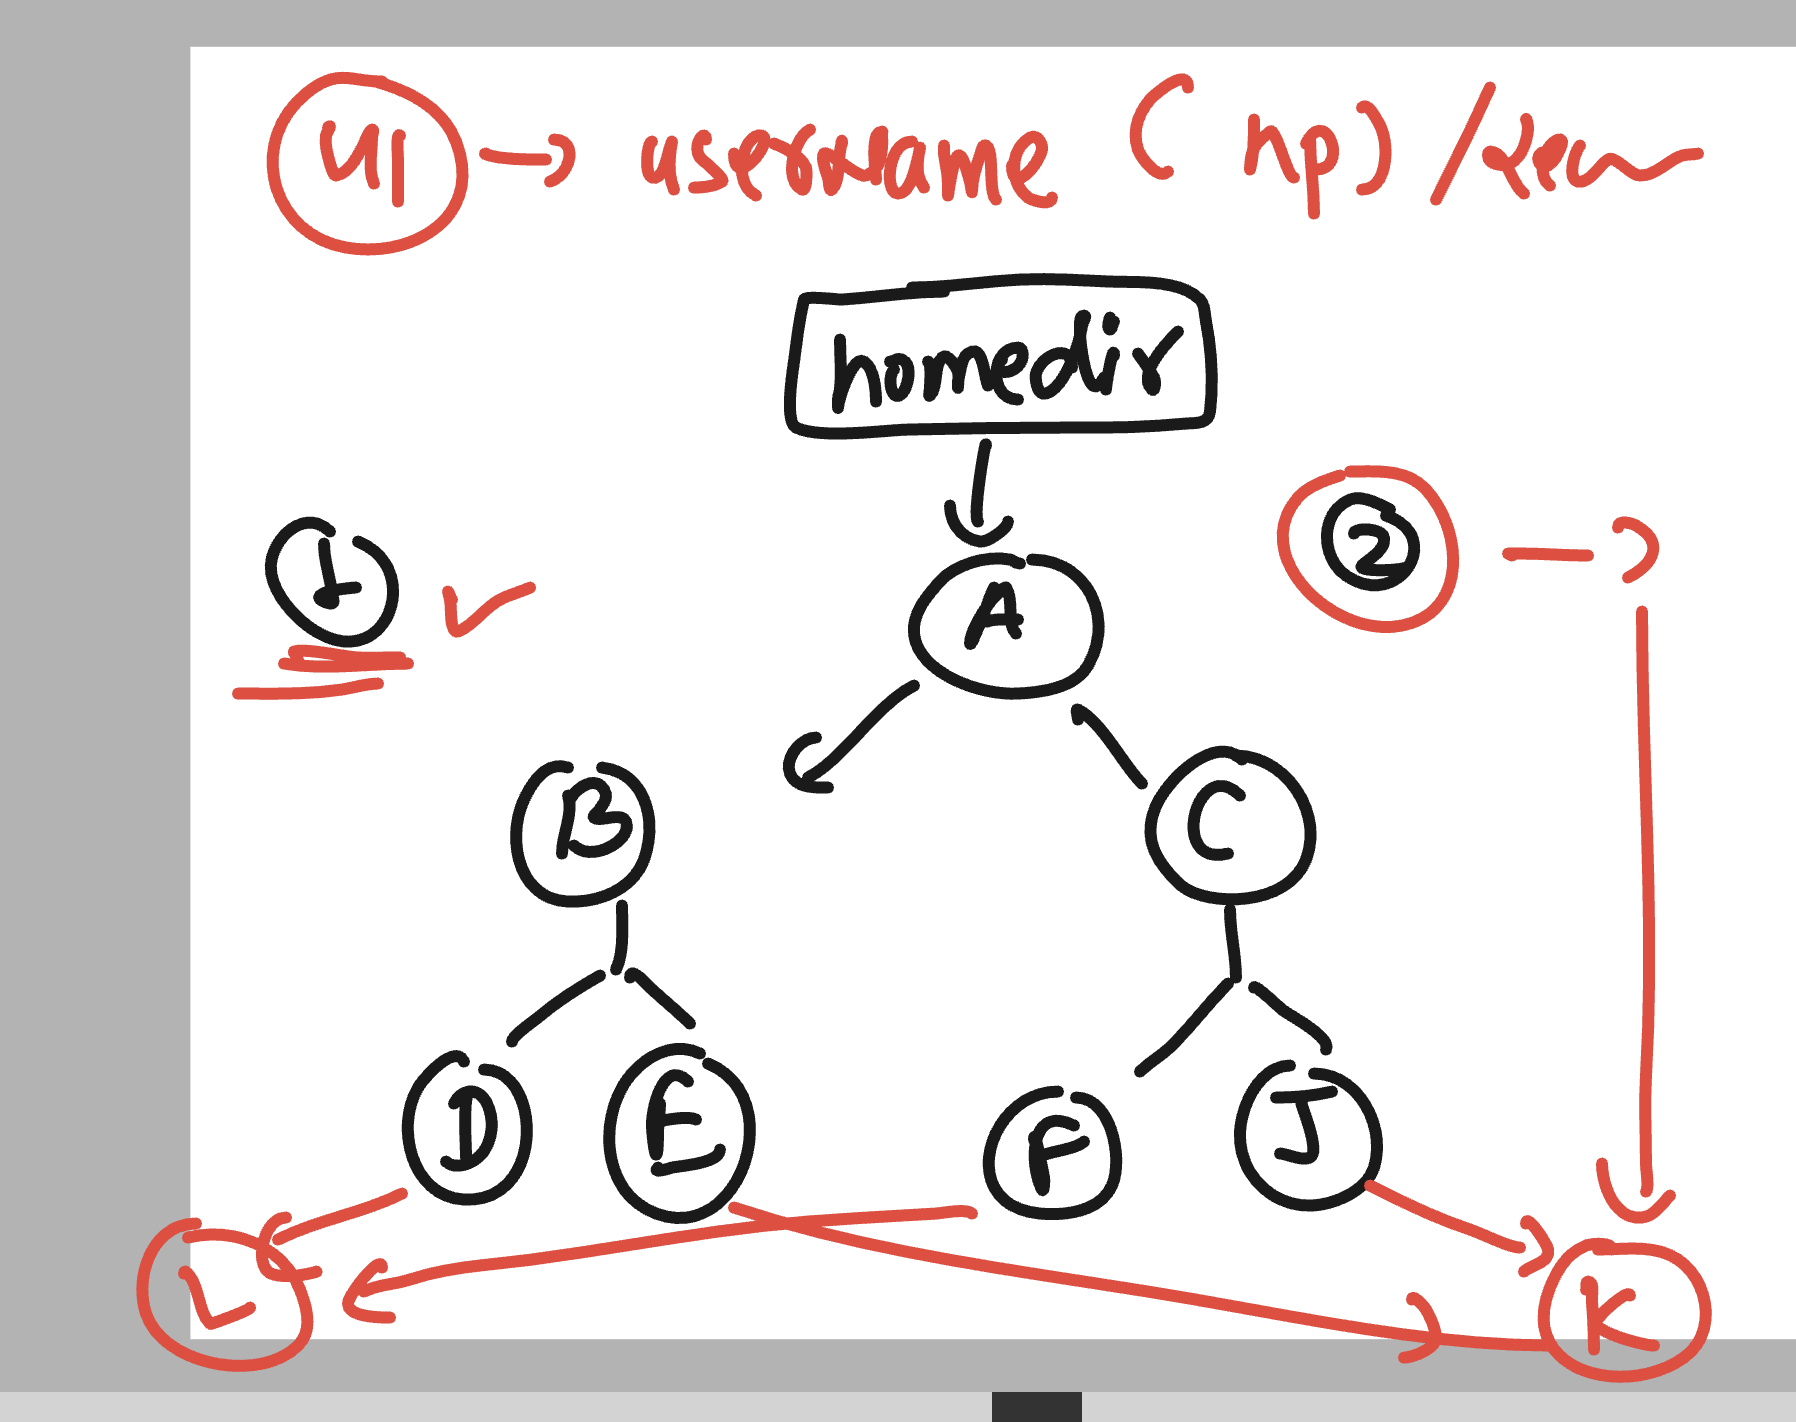 U1 → username (np) /
homedir
1 ✓
2 →
A
B
C
D E F J
L K